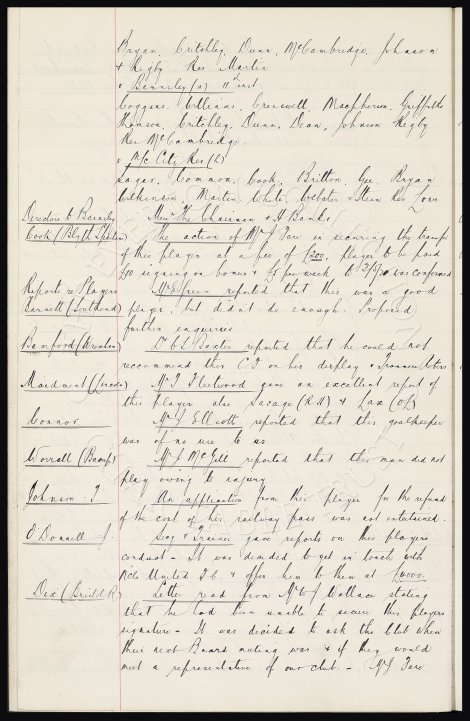 Bryan, Critchley, Dunn, McCambridge, Johnson
& Rigby Res Martin
v Barnsley (a) 11th inst
Coggins, Williams, Cresswell, Macpherson, Griffiths
Thomson, Critchley, Dunn, Dean, Johnson Rigby
Res McCambridge
v M/c City Res (h)
Sagar, Common, Cook, Britton, Gee, Bryan
Wilkinson, Martin, White, Webster & Stein Res Love
Directors to Barnsley
Messrs The Chairman & A Banks
Cook (Blyth Spartans)
The action of Mr J Fare in securing the transfer
of this player at a fee of £200, player to be paid
£10 signing on bonus & £5 per week to was confirmed
Report re Players
Barnett (Southend)
Mr Green reported that this was a good
player, but did not do enough. Proposed
further enquiries
Bamford (Wrexham)
Dr C S Baxter reported that he could not
recommend this C.F. on his display
Maidment (Lincoln)
Mr T Fleetwood gave an excellent report of
this player also Savage (R.H) & Lax (O.L)
Connor
Mr J Elliott reported that this goalkeeper
was of no use to us
Worrall (Bacup)
Mr J McGill reported this man did not
play owing to injury
Johnson. T
An application from this player for the refund
of the cost of his railway pass was not entertained.
O'Donnell
Secy & Trainer gave reports on this players
conduct - It was decided to get in touch with
United F.C. & offer him to them at £4000.
Dix (Bristol R)
Letter read from Mr W J Wallace stating
that he had been unable to secure this players
signature - It was decided to ask the Club when
their next Board meeting was & if they would
meet a representative of our club. - Mr J Fare